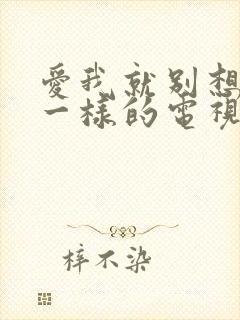 愛我就別想
一樣的電視
梓不染